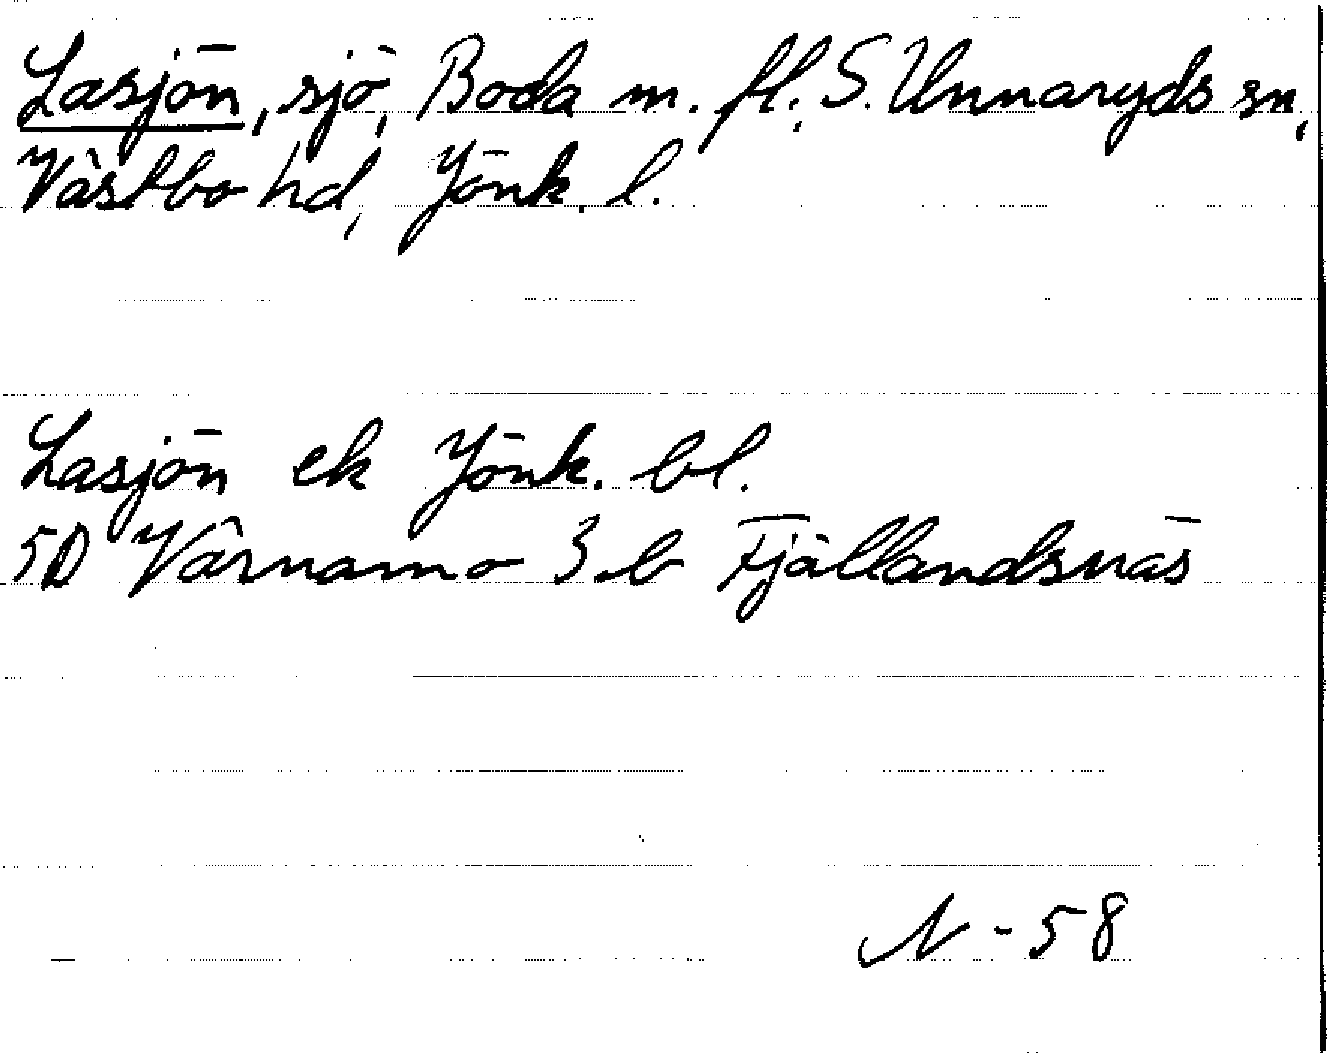 Lasjön, sjö, Boda m. fl., S. Unnaryds sn,
Västbo hd, Jönk. l.
Lasjön ek Jönk. bl.
5D Värnamo 3.b Fjällandsnäs
N - 58